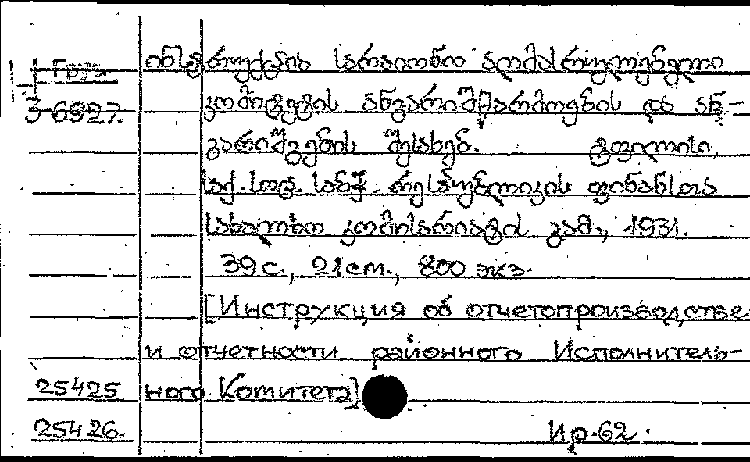 Груз. ინსტრუქცია სარაიონო აღმასრულებელი
3-6927. კომიტეტის ანგარიშწარმოების და ან-
გარიშგების შესახებ. ტფილისი,
საქ. სოც. საბჭ. რესპუბლიკის ფინანსთა
სახალხო კომისარიატის გამ., 1931.
39 с., 21 cm., 800 экз.
[Инструкция об отчетопроизводстве
и отчетности районного Исполнитель-
25425 ного Комитета]
25426. Ир-62.